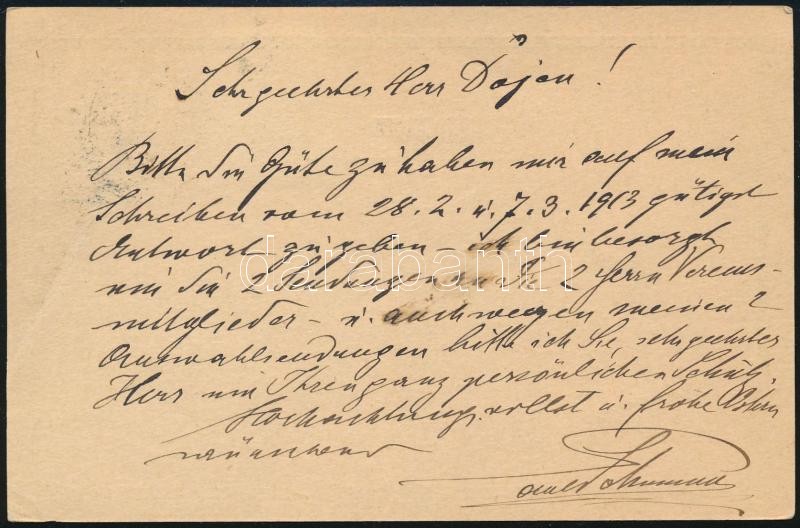 Sehr geehrter Herr Dojen!
Bitte die Güte zu haben mir auf mein
Schreiben vom 28. 2. u. 7. 3. 1913 gütigst
Antwort zu geben – ich bin besorgt
um die 2 Sendungen an die 2 Herrn Vereins-
mitglieder – u. auch wegen meinen 2
Auswahlsendungen bitte ich Sie, sehr geehrter
Herr um Ihren ganz persönlichen Schutz.
Hochachtungsvollst u. frohe Ostern
wünschend
darabanth